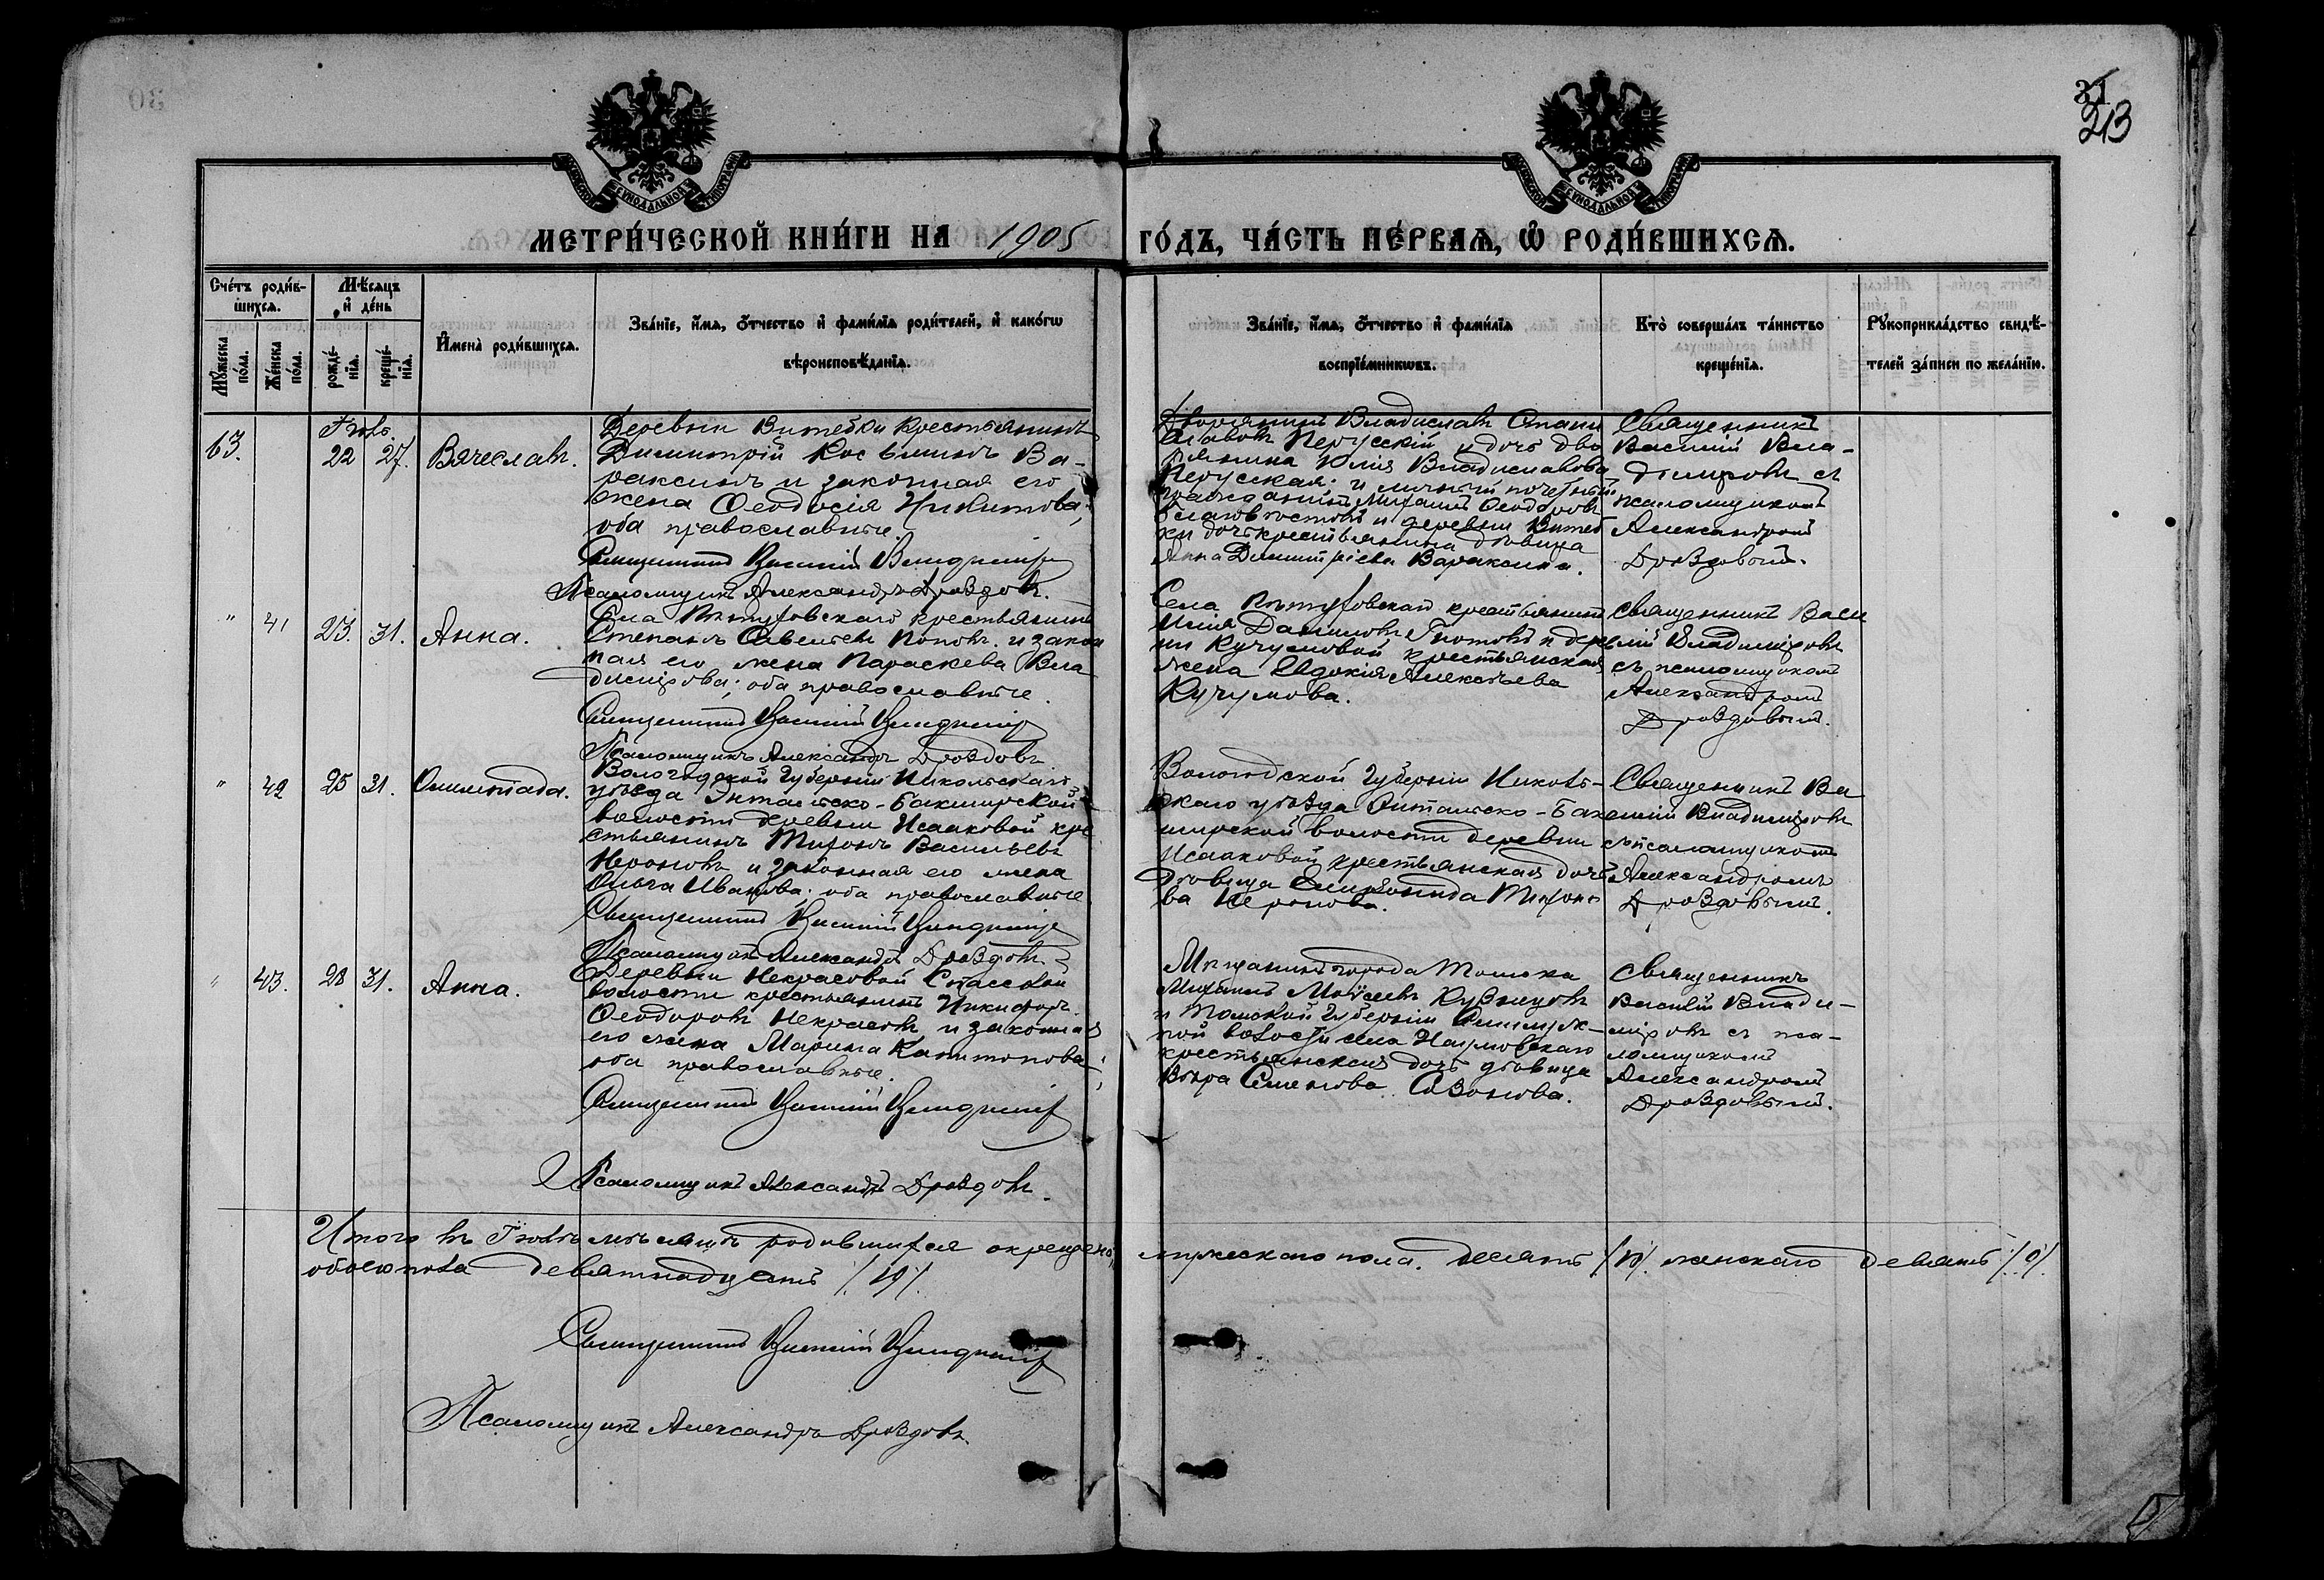 31
213
МЕТРИ́ЧЕСКОЙ КНИ́ГИ НА 1905
ГО́ДЪ, ЧА́СТЬ ПЕ́РВАѦ, Ѡ҆ РОДИ́ВШИХСѦ.
Сче́тъ роди́в-
шихсѧ.
Мѣ́сѧцъ
и҆ де́нь
Мꙋ́жеска по́ла.
Же́нска по́ла.
рожде́-
нїѧ.
креще́-
нїѧ.
И҆мена̀ роди́вшихсѧ.
Зва́нїе, и҆́мѧ, ѻ҆́тчество и҆ фами́лїѧ роди́телей, и҆ како́гѡ
вѣроисповѣ́данїѧ.
Зва́нїе, и҆́мѧ, ѻ҆́тчество и҆ фами́лїѧ
воспрїе́мникѡвъ.
Кто̀ соверша́лъ та́инство
креще́нїѧ.
Рꙋкоприкла́дство свидѣ́-
телей за́писи по жела́нїю.
63.
Іюль
22 27. Вячеславъ.
Деревни Витебки крестьянинъ
Димитрій Косьминъ Ва-
раксинъ и законная его
жена Ѳеодосія Никитова;
оба православные.
Священникъ Василій Владиміровъ
Псаломщикъ Александръ Дроздовъ.
Дворянинъ Владиславъ Стани
славовъ Перусскій и дочь дво
рянина Юлія Владиславова
Перусская; и личный почетный
гражданинъ Михаилъ Ѳеодоровъ
и деревни Витеб
ки дочь крестьянина дѣвица
Анна Димитріева Вараксина.
Священникъ
Василій Вла-
диміровъ съ
псаломщикомъ
Александромъ
Дроздовымъ.
" 41 23. 31. Анна.
Села крестьянинъ
Степанъ Савельевъ Поповъ и закон
ная его жена Параскева Вла
димірова; оба православные.
Священникъ Василій Владиміровъ
Псаломщикъ Александръ Дроздовъ
Села крестьянинъ
Илія Даниловъ и дерев
ни Кучумовой крестьянская
жена Евдокія Алексѣева
Кучумова.
Священникъ Васи
лій Владиміровъ
съ псаломщикомъ
Александромъ
Дроздовымъ.
" 42 25 31. Олимпіада.
Вологодской губерніи Никольскаго
уѣзда Энтальско-Бакширской
волости деревни Исааковой кре
стьянинъ Тихонъ Васильевъ
Нероновъ и законная его жена
Ольга Иванова; оба православные
Священникъ Василій Владиміровъ
Псаломщикъ Александръ Дроздовъ.
Вологодской губерніи Николь-
скаго уѣзда Энтальско-Бак
ширской волости деревни
Исааковой крестьянская дочь
дѣвица Тихоно
ва Неронова.
Священникъ Ва
силій Владиміровъ
съ псаломщикомъ
Александромъ
Дроздовымъ.
" 43. 28 31. Анна.
Деревни Некрасовой Спасской
волости крестьянинъ Никифоръ
Ѳеодоровъ Некрасовъ и законная
его жена Марина Капитонова;
оба православные.
Священникъ Василій Владиміровъ
Псаломщикъ Александръ Дроздовъ.
Мѣщанинъ города Томска
Михаилъ Моѵсеевъ Кузнецовъ
и Томской губерніи Семилуж-
ной волости села Наумовскаго
крестьянская дочь дѣвица
Вѣра Семенова Созонова.
Священникъ
Василій Влади-
міровъ съ пса-
ломщикомъ
Александромъ
Дроздовымъ.
Итого въ Іюлѣ мѣсяцѣ родившихся окрещено,
мужескаго пола десять /10/ женскаго девять /9/
обоего пола девятнадцать /19/.
Священникъ Василій Владиміровъ
Псаломщикъ Александръ Дроздовъ